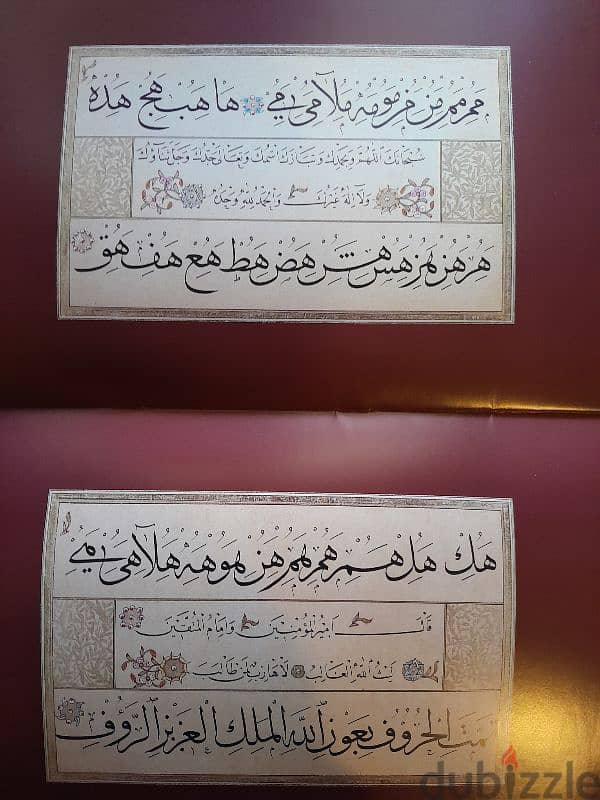 مم مم من مو مه ملا مى مي ها هب هج هد
سبحانك اللهم وبحمدك وتبارك اسمك وتعالى جدك وجل ثناؤك
ولا اله غيرك والحمد لله وحده
هر هر هس هش هض هط هع هف هق
هك هل هم هم هم هن هو هه هلا هى
قال امير المؤمنين وامام المتقين
ليث الله الغالب لا هارب من طالب
تمت الحروف بعون الله الملك العزيز الرؤف
dubizzle